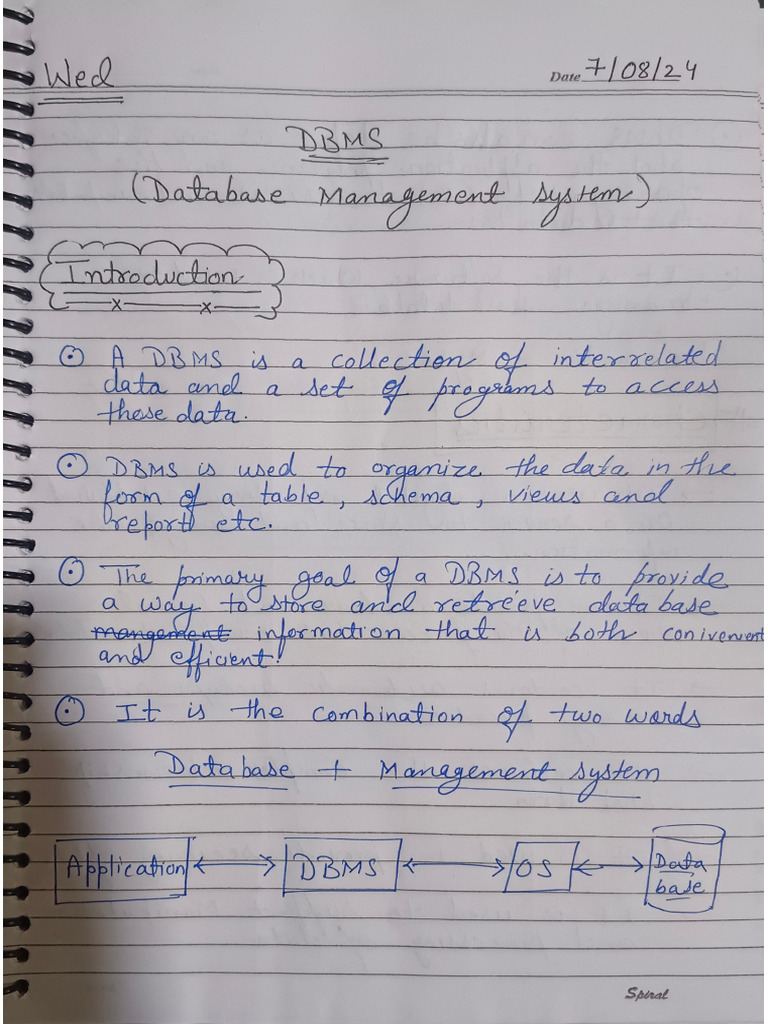 Wed
Date 7/08/24
DBMS
(Database Management System)
Introduction
A DBMS is a collection of interrelated
data and a set of programs to access
these data.
DBMS is used to organize the data in the
form of a table, schema, views and
report etc.
The primary goal of a DBMS is to provide
a way to store and retreeve database
mangement information that is both conivenient
and efficient.
It is the combination of two words
Database + Management system
Application DBMS OS Data
base
Spiral